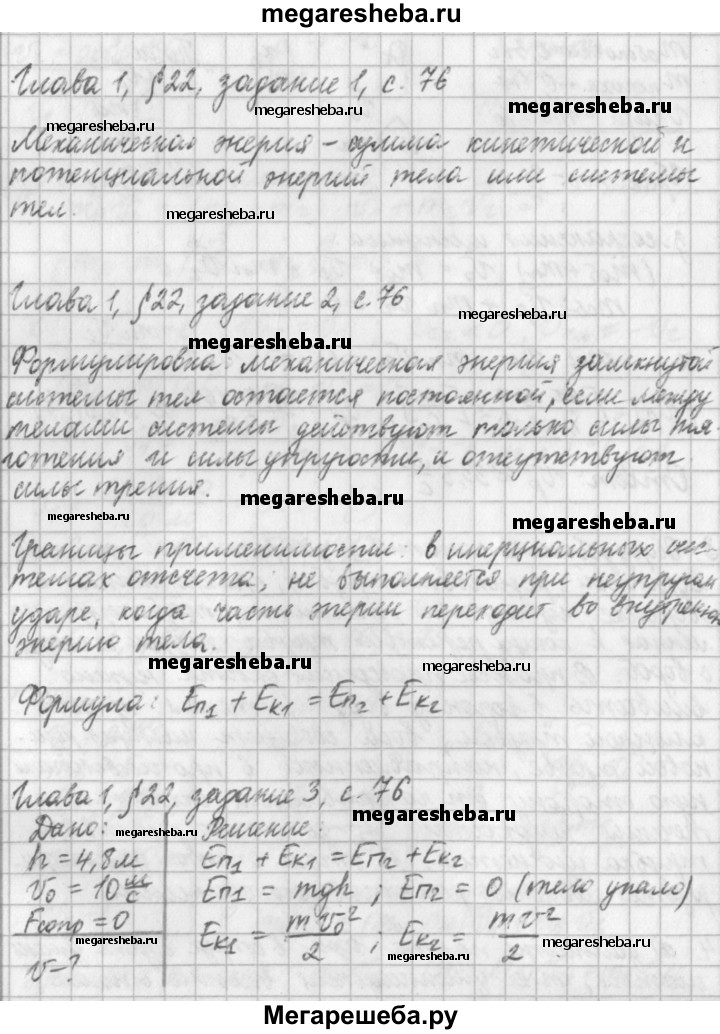 megaresheba.ru
Глава 1, §22, задание 1, с. 76
megaresheba.ru
megaresheba.ru
megaresheba.ru
Механическая энергия – сумма кинетической и
потенциальной энергий тела или системы
тел.
megaresheba.ru
Глава 1, §22, задание 2, с. 76
megaresheba.ru
megaresheba.ru
Формулировка: механическая энергия замкнутой
системы тел остается постоянной, если между
телами системы действуют только силы тя-
готения и силы упругости, и отсутствуют
силы трения.
megaresheba.ru
megaresheba.ru
megaresheba.ru
Границы применимости: в инерциальных сис-
темах отсчета; не выполняется при неупругом
ударе, когда часть энергии переходит во внутреннюю
энергию тела.
megaresheba.ru
megaresheba.ru
Формула: Eп₁ + Eк₁ = Eп₂ + Eк₂
Глава 1, §22, задание 3, с. 76
megaresheba.ru
Дано:
megaresheba.ru
h = 4,8 м
v₀ = 10 м/с
Fсопр = 0
megaresheba.ru
v – ?
Решение:
Eп₁ + Eк₁ = Eп₂ + Eк₂
Eп₁ = mgh ; Eп₂ = 0 (тело упало)
Eк₁ = mv₀²/2 ; Eк₂ = mv²/2
megaresheba.ru
megaresheba.ru
Мегарешеба.ру